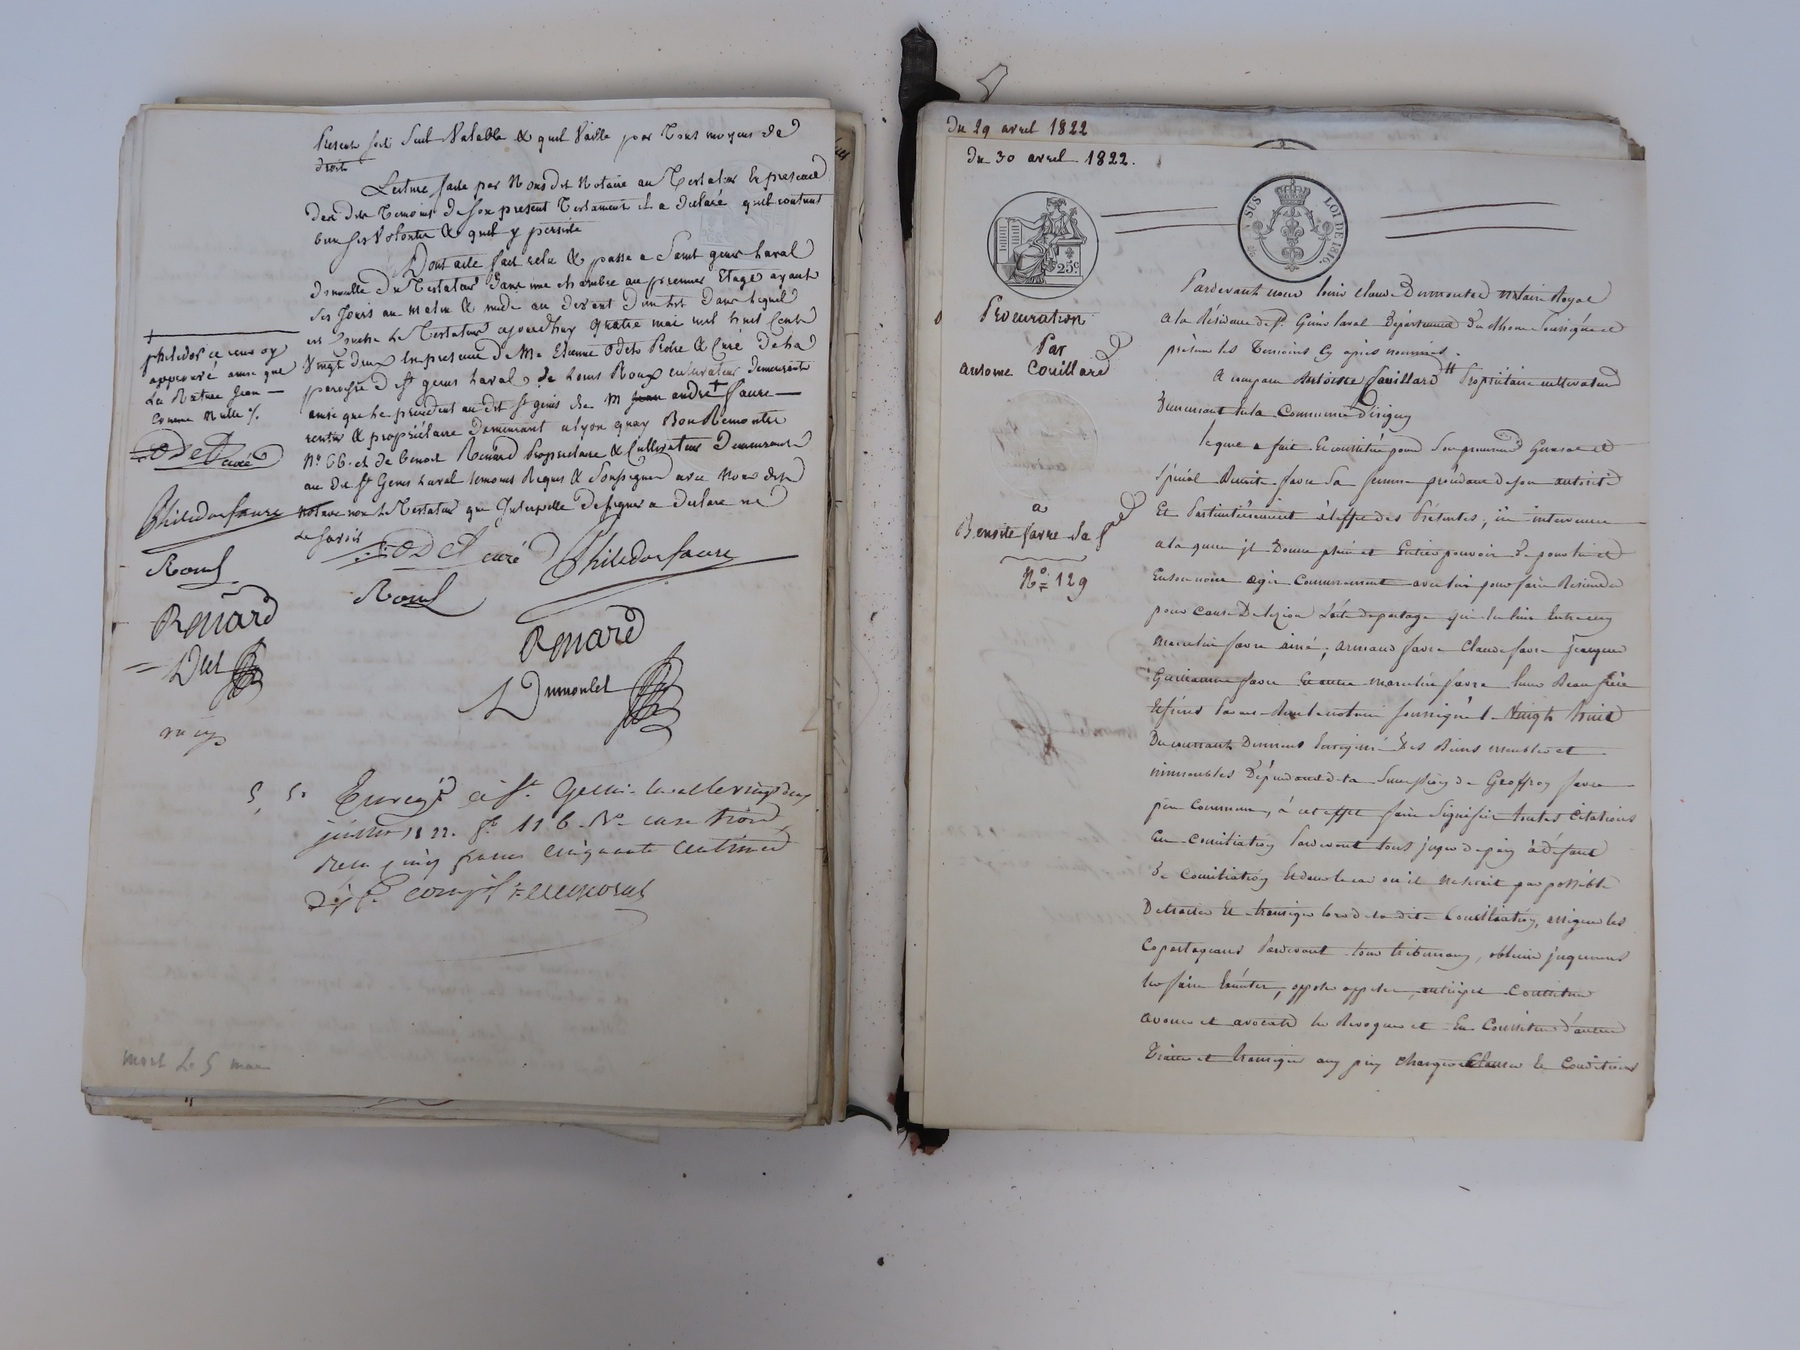 Present soit seul valable & quil vaille par tous moyens de
droit
Lecture faite par Nous dit Notaire au Testateur En presence
des dits Temoins de son present Testament il a declaré quil contient
bien ses volontés & quil y persiste
Dont acte fait relu & passé a Saint genis laval
domicille du Testateur dans une chambre au premier Etage ayant
ses Jours au matin & midi au devant d'un lit dans lequel
est le Testateur aujourdhuy quatre mai mil huit Cent
Vingt deux En presence de Mr Etienne Odet Pretre & Curé de la
paroisse de St genis laval, de Louis Roux cultivateur demeurants
ainsi que le precedent au dit St genis de M Jean andré + faure
rentier & propriétaire demeurant a lyon quay Bon Remontre
No 66 et de benoit Renard Propriétaire & Cultivateur demeurant
au dit St Genis laval temoins Requis & Soussignés avec Nous dit
Notaire non le Testateur qui Interpellé de signer a declaré ne
le savoir
+
philidor ce renvoy
approuvé ainsi que
La Rature Jean
Comme Nulle /.
Odet curé
Philidor faure
Roux
Renard
Odet curé Philidor faure
Roux
Renard
Dumoulet
5 5 Enregé à St Genis-laval le vingt deux
juillet 1822. fo 116 Vo case trois
Reçu cinq francs cinquante centimes
mort le 5 mai
du 29 avril 1822
du 30 avril 1822.
25c
SUS LOI DE 1816.
Procuration
Par
antoine Couillard
a
Benoite favre sa fe
No 129
Pardevant nous louis claude Dumoulet notaire Royal
a la Résidence de St Genis laval Département du Rhone soussigné et
présens les Temoins cy après nommés.
A comparu Antoine Couillard Propriétaire cultivateur
demeurant en la Commune d'irigny
lequel a fait & constitué pour Son procureur General et
Spécial Benoite favre Sa femme procédant de son autorité
Et Particulièrement à l'effet des Présentes, ici intervenue
a laquelle il Donne plein et Entier pouvoir de pour lui et
En son nom agir conjointement avec lui pour faire Rescinder
pour cause De lezion l'acte de partage qui a eu lieu Entre eux
marcelin favre ainé, armand favre Claude favre françois
Guillaume favre Et autre marcelin favre leurs Beau frère
Et frères par devant le notaire soussigné le Vingt huit
Du courant Duement Enregistré des Biens meubles et
immeubles Dépendant de la Succession de Geoffroy favre
père commun, à cet effet faire Signifier toutes citations
En conciliation Pardevant tous juges de paix à défaut
de conciliation Et dans le cas où il ne serait pas possible
De traiter Et transiger lors de la dite Conciliation, assigner les
Copartageans Pardevant tous tribunaux, obtenir jugemens
les faire Exécuter, opposer appeler, anticiper Constituer
avoués et avocats les Revoquer et En Constituer d'autres
Traiter et transiger aux prix charges Clauses & Conditions